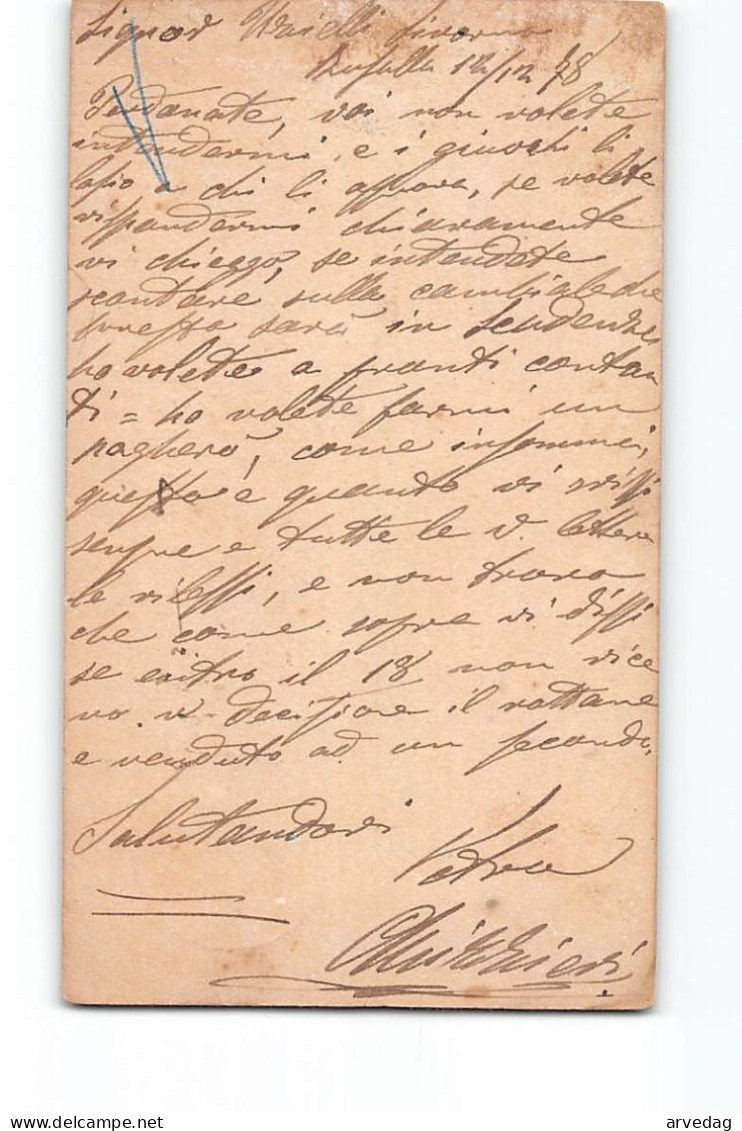 Signor Livorno
12/12 78
Perdonate, voi non volete
intendermi, e i giuochi li
lascio a chi li aprova, se volete
rispondermi chiaramente
vi chieggo, se intendete
scontare sulla cambiale che
questa sarà in scadenza
ho volete a pronti contan
ti = ho volete farmi un
pagherò, come insomma,
questo è quanto vi dissi
sempre e tutte le v. lettere
le rilessi, e non trovo
che come sopra vi dissi
se entro il 18 non rice
vo v. decisione il rottame
e venduto ad un secondo.
Salutandovi
Vostro
delcampe.net
arvedag